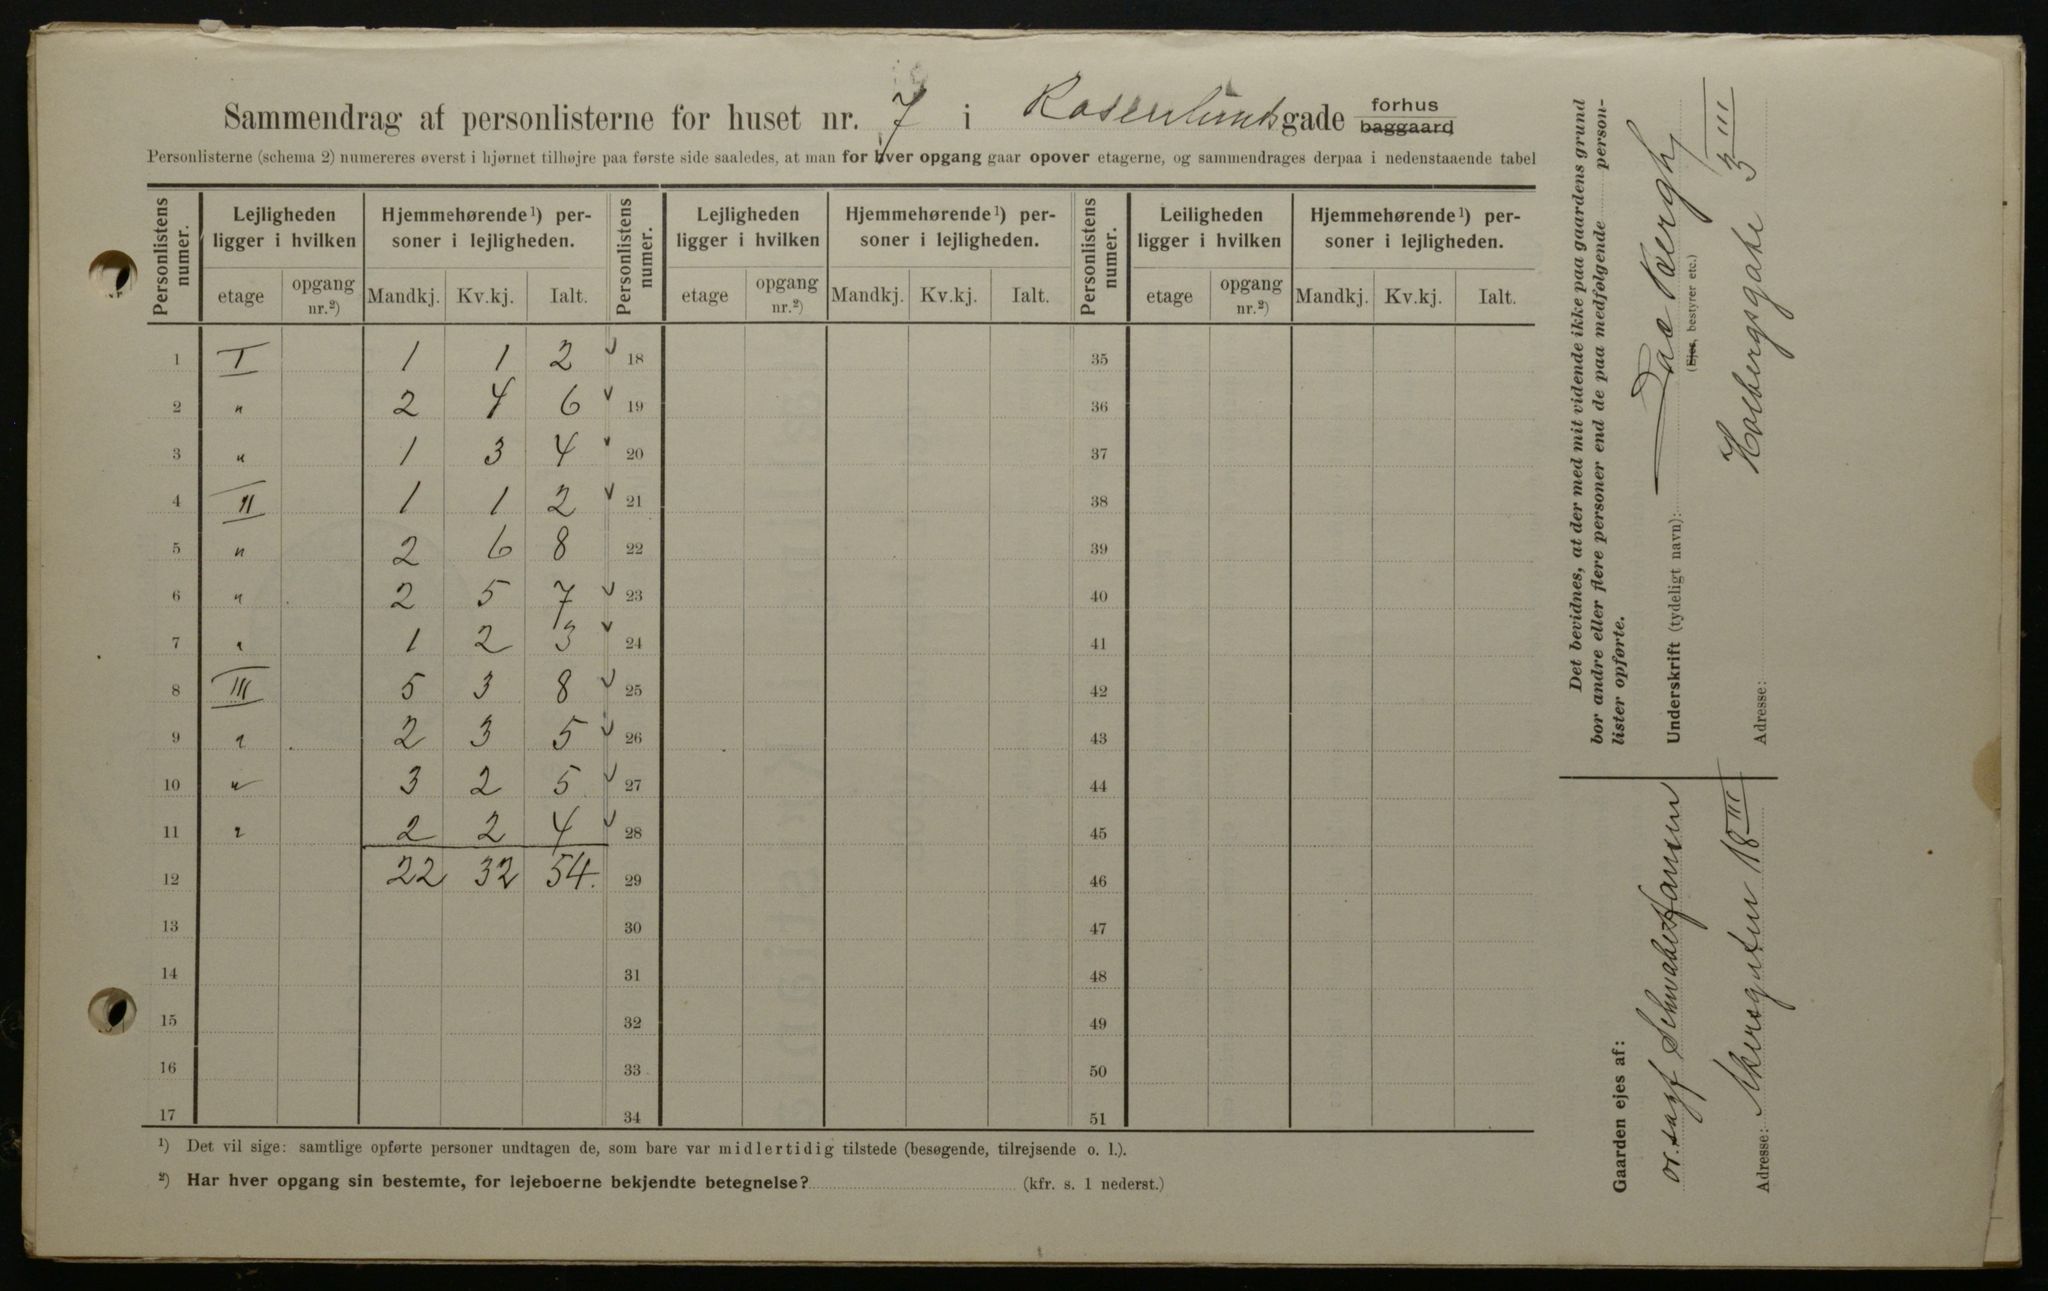 Sammendrag af personlisterne for huset nr. 7 i Rosenlundsgade forhus baggaard
Personlisterne (schema 2) numereres øverst i hjørnet tilhøjre paa første side saaledes, at man for hver opgang gaar opover etagerne, og sammendrages derpaa i nedenstaaende tabel
Personlistens numer. Lejligheden ligger i hvilken Hjemmehørende¹) personer i lejligheden. Personlistens numer. Lejligheden ligger i hvilken Hjemmehørende¹) personer i lejligheden. Personlistens numer. Leiligheden ligger i hvilken Hjemmehørende¹) personer i lejligheden.
etage opgang nr.²) Mandkj. Kv.kj. Ialt. etage opgang nr.²) Mandkj. Kv.kj. Ialt. etage opgang nr.²) Mandkj. Kv.kj. Ialt.
1 I 1 1 2 18 35
2 " 2 4 6 19 36
3 " 1 3 4 20 37
4 II 1 1 2 21 38
5 " 2 6 8 22 39
6 " 2 5 7 23 40
7 " 1 2 3 24 41
8 III 5 3 8 25 42
9 " 2 3 5 26 43
10 " 3 2 5 27 44
11 " 2 2 4 28 45
12 22 32 54. 29 46
13 30 47
14 31 48
15 32 49
16 33 50
17 34 51
¹) Det vil sige: samtlige opførte personer undtagen de, som bare var midlertidig tilstede (besøgende, tilrejsende o. l.).
²) Har hver opgang sin bestemte, for lejeboerne bekjendte betegnelse? (kfr. s. 1 nederst.)
Det bevidnes, at der med mit vidende ikke paa gaardens grund
bor andre eller flere personer end de paa medfølgende person-
lister opførte.
Underskrift (tydeligt navn):
(Ejer, bestyrer etc.)
Adresse: Holbergsgate 3 III
Gaarden ejes af:
or. sagf Schwabe Hansen
Adresse: Akersgaten 18 III